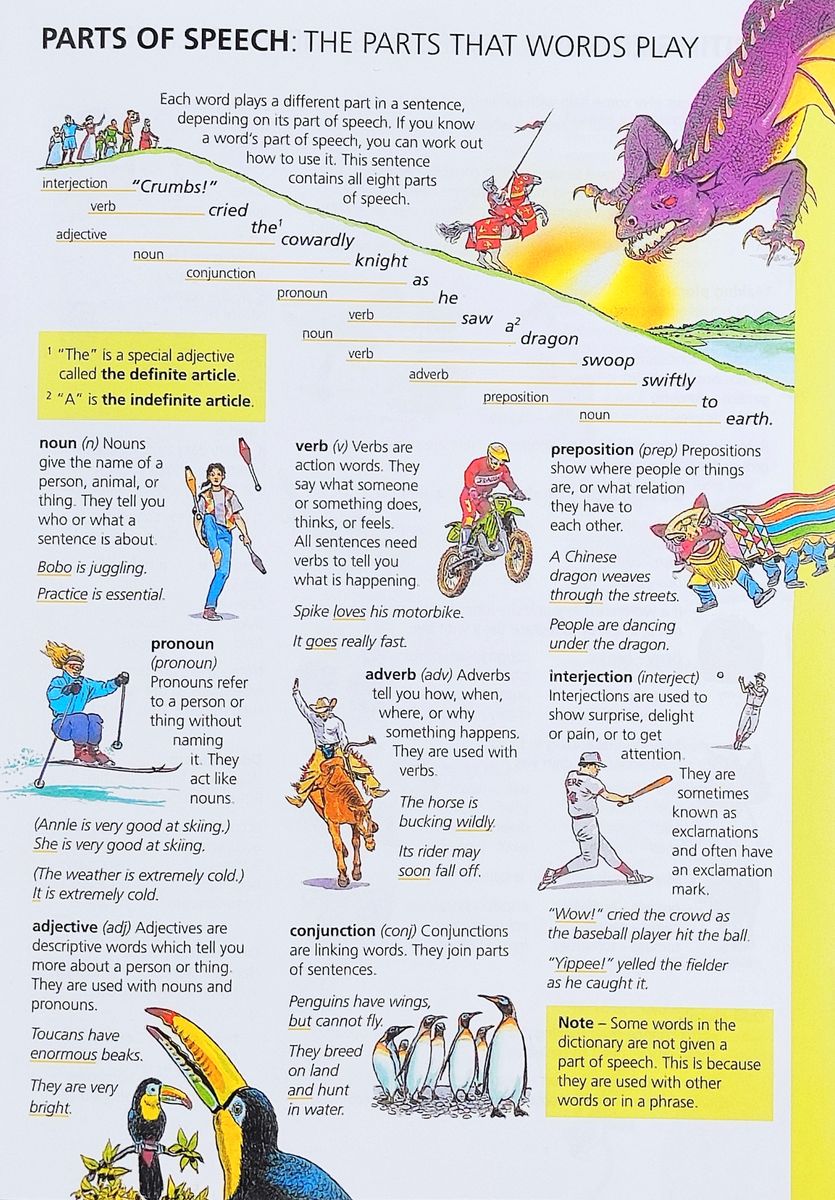 PARTS OF SPEECH: THE PARTS THAT WORDS PLAY
Each word plays a different part in a sentence,
depending on its part of speech. If you know
a word's part of speech, you can work out
how to use it. This sentence
contains all eight parts
of speech.
interjection "Crumbs!"
verb cried
the¹
adjective cowardly
noun knight
conjunction as
pronoun he
verb saw
a²
noun dragon
verb swoop
adverb swiftly
preposition to
noun earth.
¹ "The" is a special adjective
called the definite article.
² "A" is the indefinite article.
noun (n) Nouns
give the name of a
person, animal, or
thing. They tell you
who or what a
sentence is about.
Bobo is juggling.
Practice is essential.
verb (v) Verbs are
action words. They
say what someone
or something does,
thinks, or feels.
All sentences need
verbs to tell you
what is happening.
Spike loves his motorbike.
It goes really fast.
preposition (prep) Prepositions
show where people or things
are, or what relation
they have to
each other.
A Chinese
dragon weaves
through the streets.
People are dancing
under the dragon.
pronoun
(pronoun)
Pronouns refer
to a person or
thing without
naming
it. They
act like
nouns.
(Annie is very good at skiing.)
She is very good at skiing.
(The weather is extremely cold.)
It is extremely cold.
adverb (adv) Adverbs
tell you how, when,
where, or why
something happens.
They are used with
verbs.
The horse is
bucking wildly.
Its rider may
soon fall off.
interjection (interject)
Interjections are used to
show surprise, delight
or pain, or to get
attention.
They are
sometimes
known as
exclamations
and often have
an exclamation
mark.
"Wow!" cried the crowd as
the baseball player hit the ball.
"Yippee!" yelled the fielder
as he caught it.
adjective (adj) Adjectives are
descriptive words which tell you
more about a person or thing.
They are used with nouns and
pronouns.
Toucans have
enormous beaks.
They are very
bright.
conjunction (conj) Conjunctions
are linking words. They join parts
of sentences.
Penguins have wings,
but cannot fly.
They breed
on land
and hunt
in water.
Note – Some words in the
dictionary are not given a
part of speech. This is because
they are used with other
words or in a phrase.